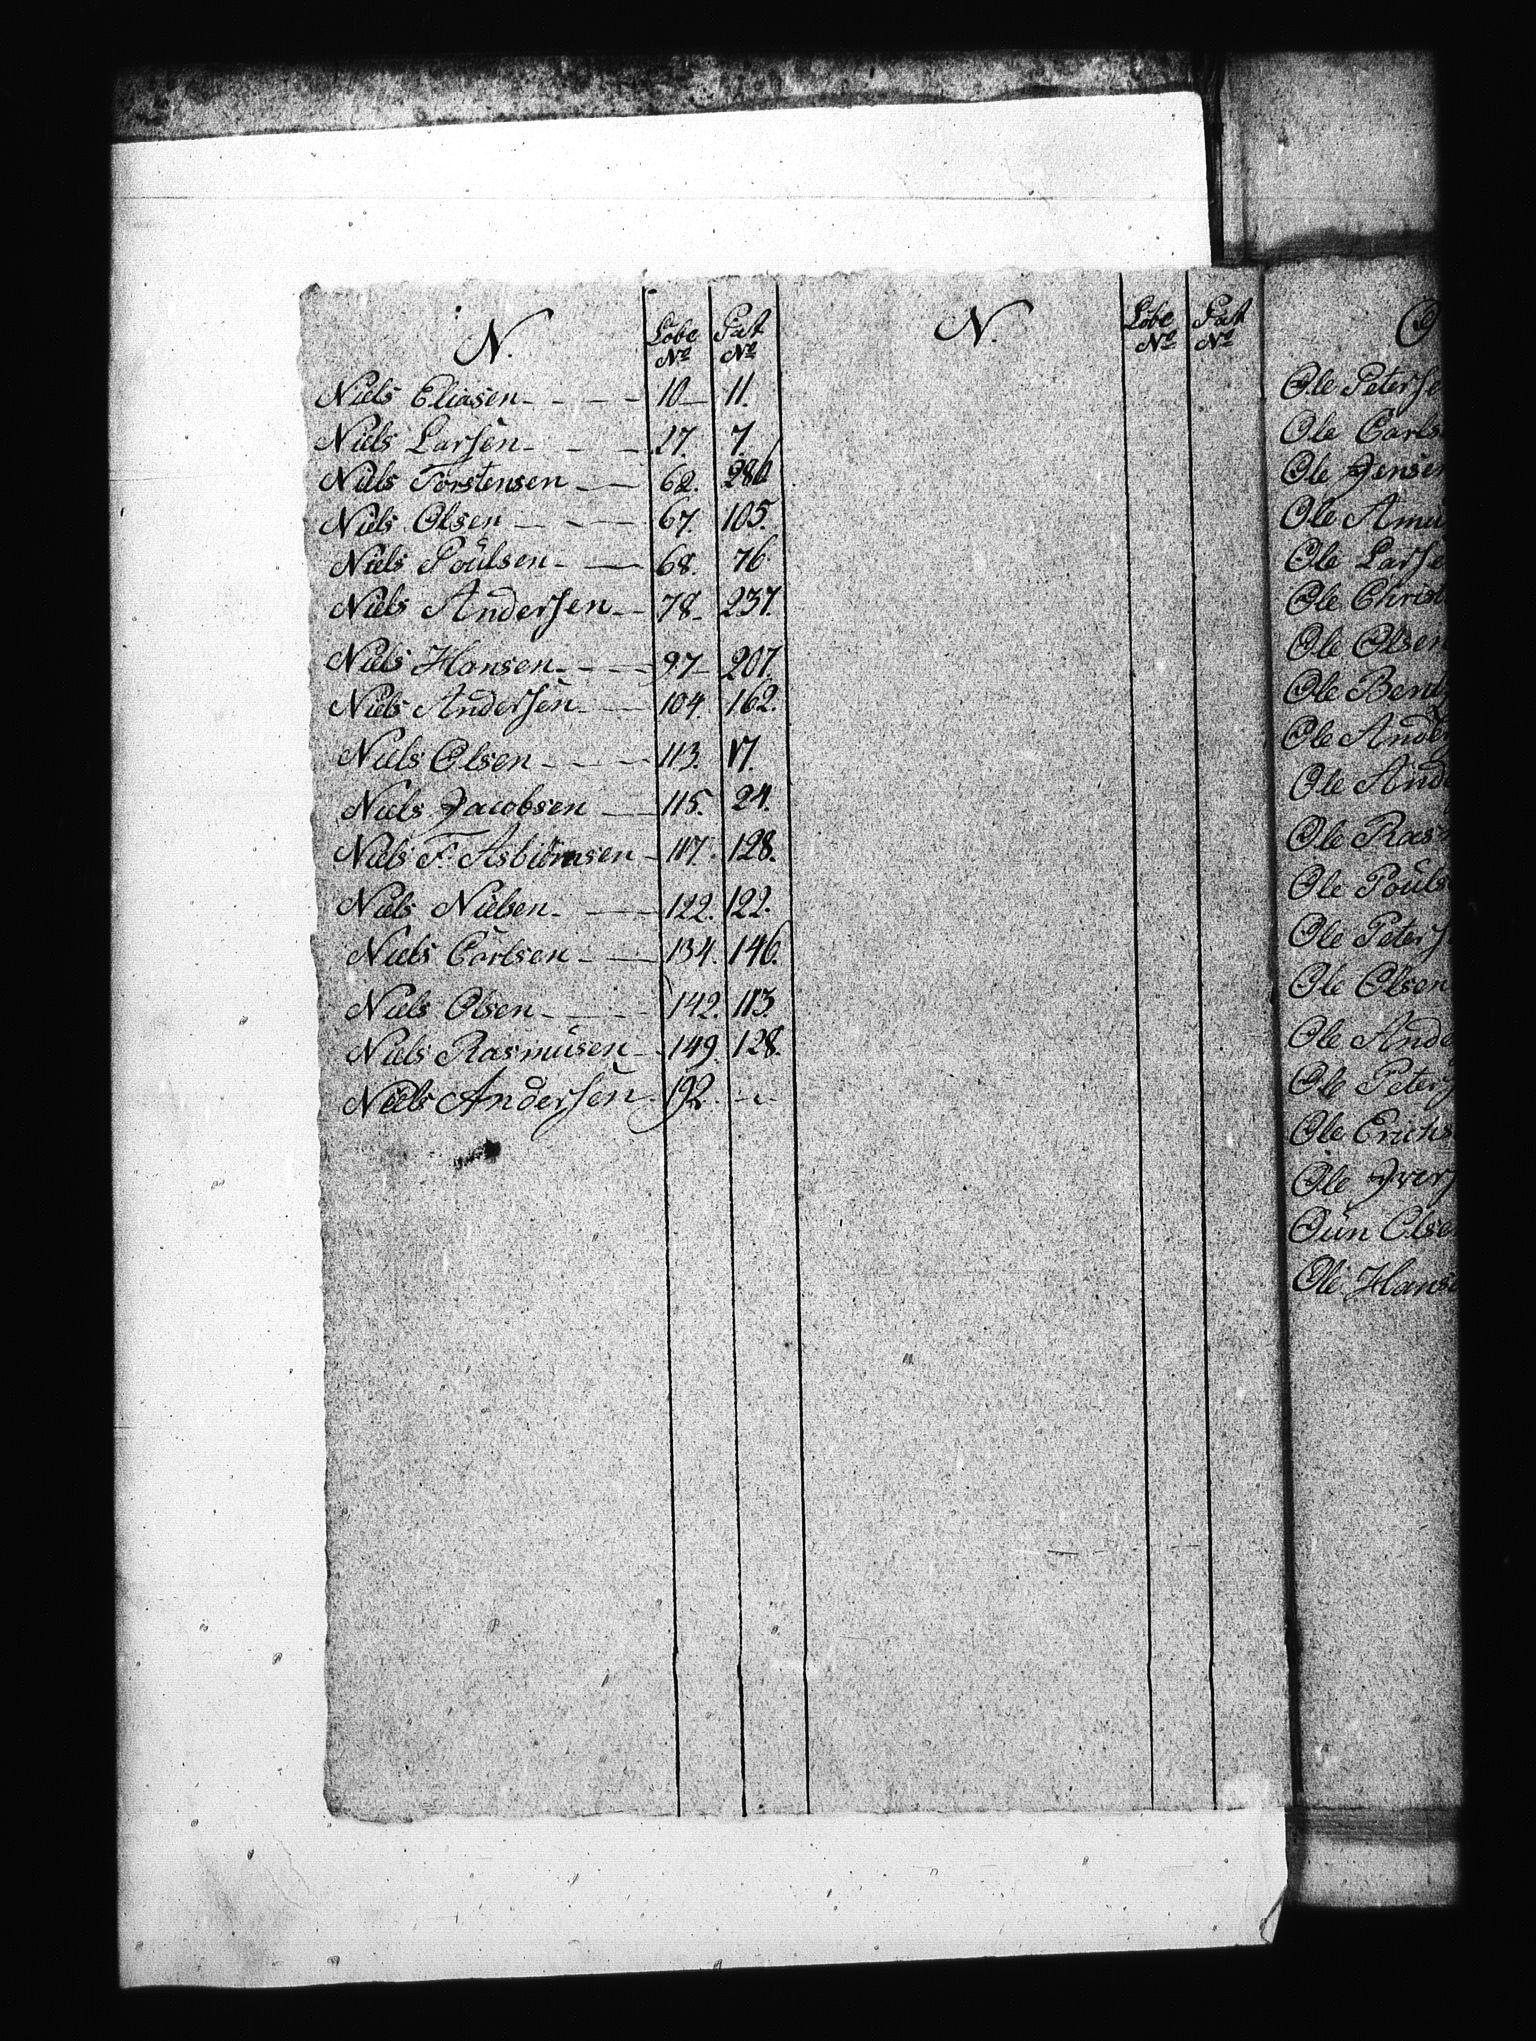 N. Løbe Nº Pat Nº
Niels Eliasen 10 11.
Niels Larsen 27. 7.
Niels Torstensen 62. 286
Niels Olsen 67. 105.
Niels Poulsen 68. 76
Niels Andersen 78 237.
Niels Hansen 97 207.
Niels Andersen 104. 162.
Niels Olsen 113. 17.
Niels Jacobsen 115. 24.
Niels F. Asbiörnsen 117. 128.
Niels Nielsen 122. 122.
Niels Carlsen 134. 146.
Niels Olsen 142. 113
Niels Rasmusen 149. 128.
Niels Andersen 192.
N. Løbe Nº Pat Nº
O
Ole Peterse
Ole Carls
Ole Jensen
Ole Amu
Ole Larse
Ole Christ
Ole Olsen
Ole Bent
Ole Ander
Ole Ande
Ole Ras
Ole Pouls
Ole Peters
Ole Olsen
Ole Ande
Ole Peters
Ole Erichs
Ole Ivers
Oun Olse
Ole Hanse